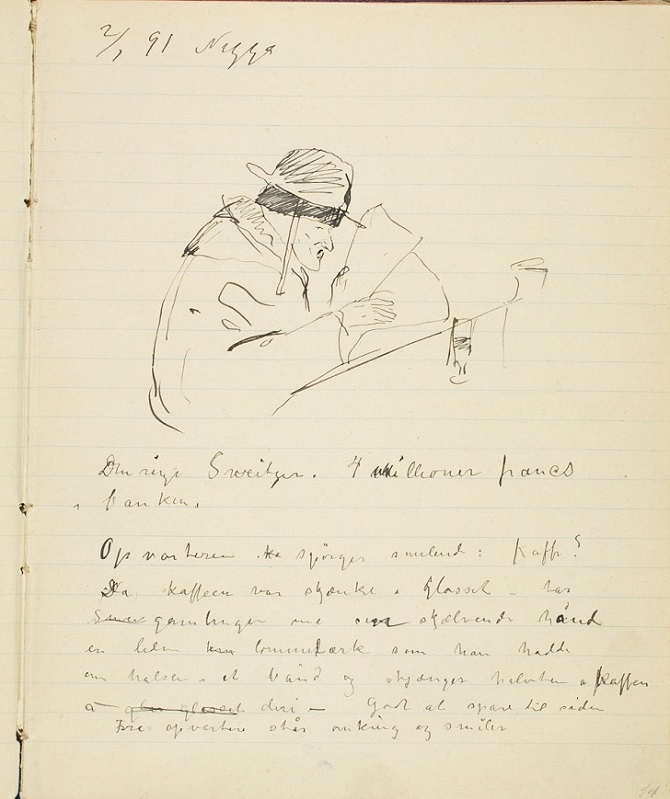 2/1 91 Nizza
Den rige Sweitzer. 4 millioner francs
i banken.
Opvarteren spörger smilend: Kaffe?
Da kaffeen var skjænket i Glasset – tar
gamlingen med skjælvende hånd
en liden lommelærke som han hadde
om halsen i et bånd og skjænger halvten a kaffen
deri – Godt at spare til siden
Fire opvartere står omkring og smiler
14